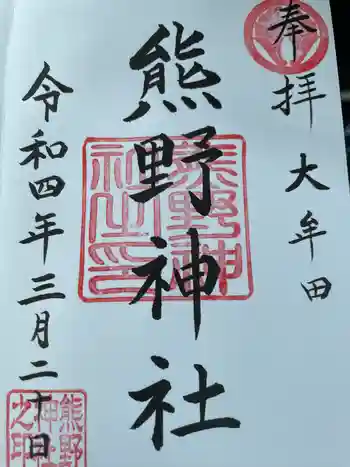 奉拝
大牟田
熊野神社
熊野神社之印
令和四年三月二十日
熊野神社之印